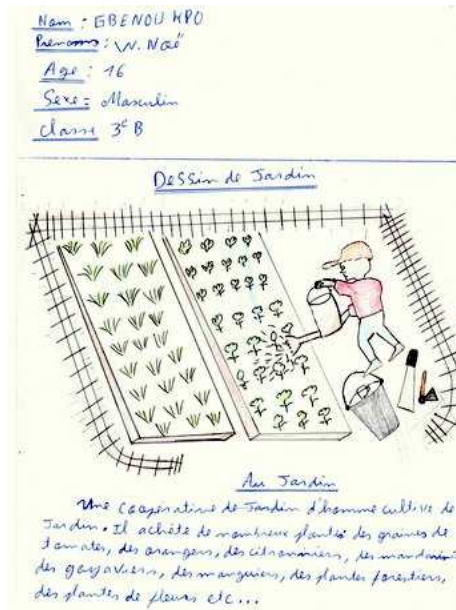 Nom : GBENOU KPO
Prenoms : W. Noë
Age : 16
Sexe = Masculin
Classe 3e B
DeSSin de Jardin
Au Jardin
Une coopérative de Jardin d'homme cultive de
Jardin. Il achète de nombreux plantes des graines de
tomates, des orangers, des citronniers, des mandarini
des goyaviers, des manguiers, des plantes forestiers,
des plantes de fleurs etc...